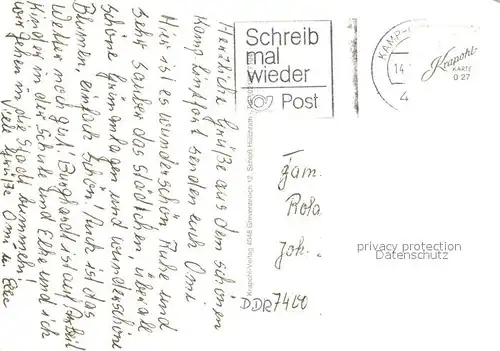 Herzliche Grüße aus dem schönen
Kamplintfort senden euch Omi
Hier ist es wunderschön Ruhe und
sehr sauber das Städtchen, überall
schöne Grünanlagen und wunderschöne
Blumen, einfach schön! Auch ist das
Wetter noch gut. Burghardt ist auf Arbeit
Kinder in der Schule und Elke und ich
wir gehen in die Stadt bummeln!
Viele Grüße Omi u. Elke
Schreib
mal
wieder
Post
KAMP-
14.
4
Krapohl-
KARTE
0 27
Krapohl-Verlag 4048 Grevenbroich 12, Schloß Hülchrath
Fam.
Rola
Joh.
DDR 7400
privacy protection
Datenschutz